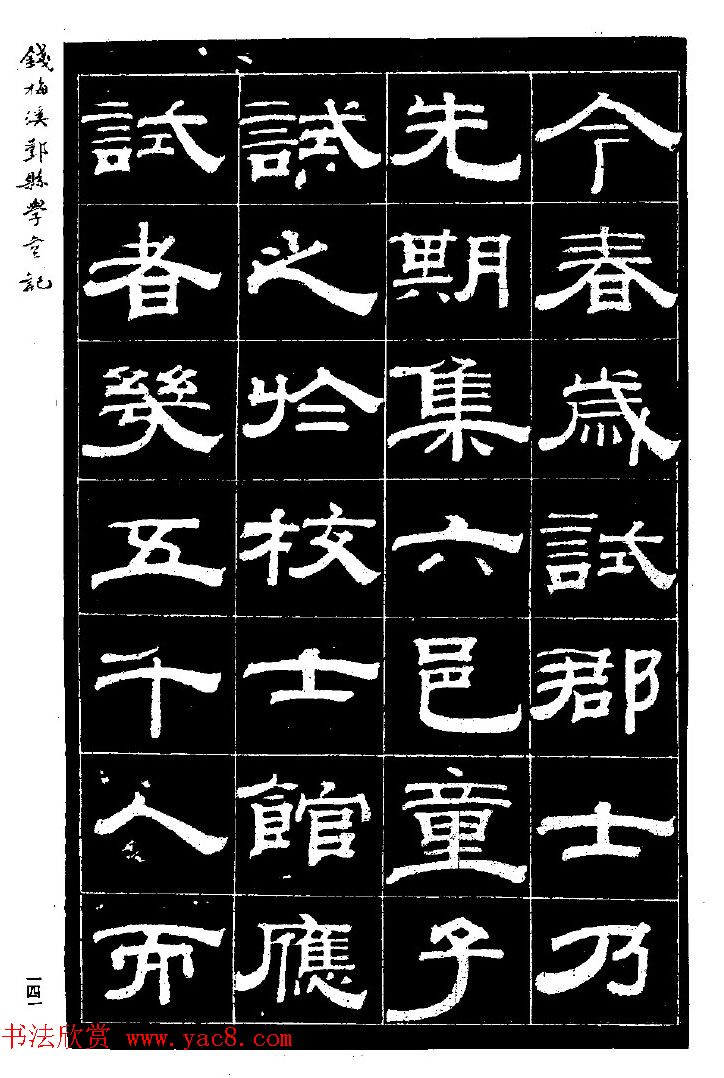 今春歲試郡士乃
先期集六邑童子
試之於校士館應
試者幾五千人而
錢梅溪鄞縣學記
一四一
书法欣赏 www.yac8.com